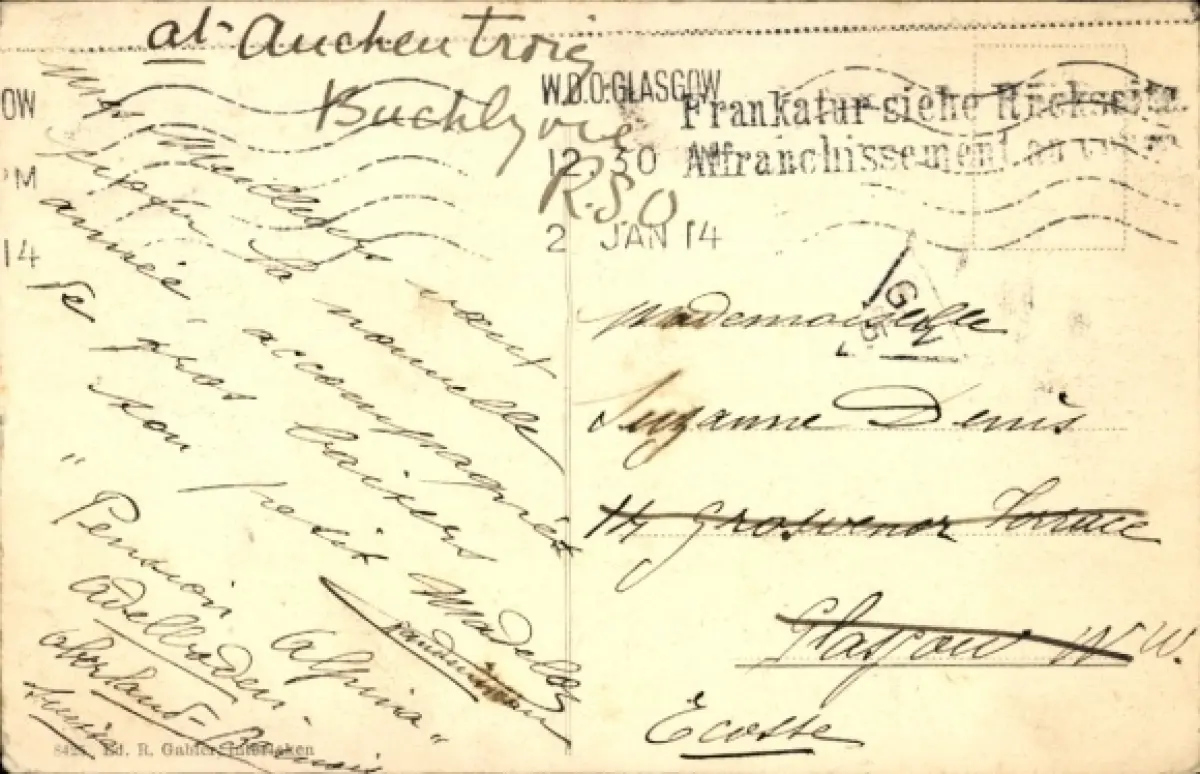 at Auchentroig
Buchlyvie
R.S.O
OW
PM
14
W.D.O. GLASGOW
12.30 PM
2 JAN 14
Frankatur siehe Rückseite
Affranchissement au verso
Mes meilleurs vœux
pour la nouvelle
année accompagnés
de gros baisers
ton petit
"Pension Alpina"
Adelboden
Oberland-Bernois
Suisse
Mademoiselle
Suzanne Denis
14 Grosvenor Terrace
Glasgow W.
Ecosse
Ed. R. Gabler, Interlaken